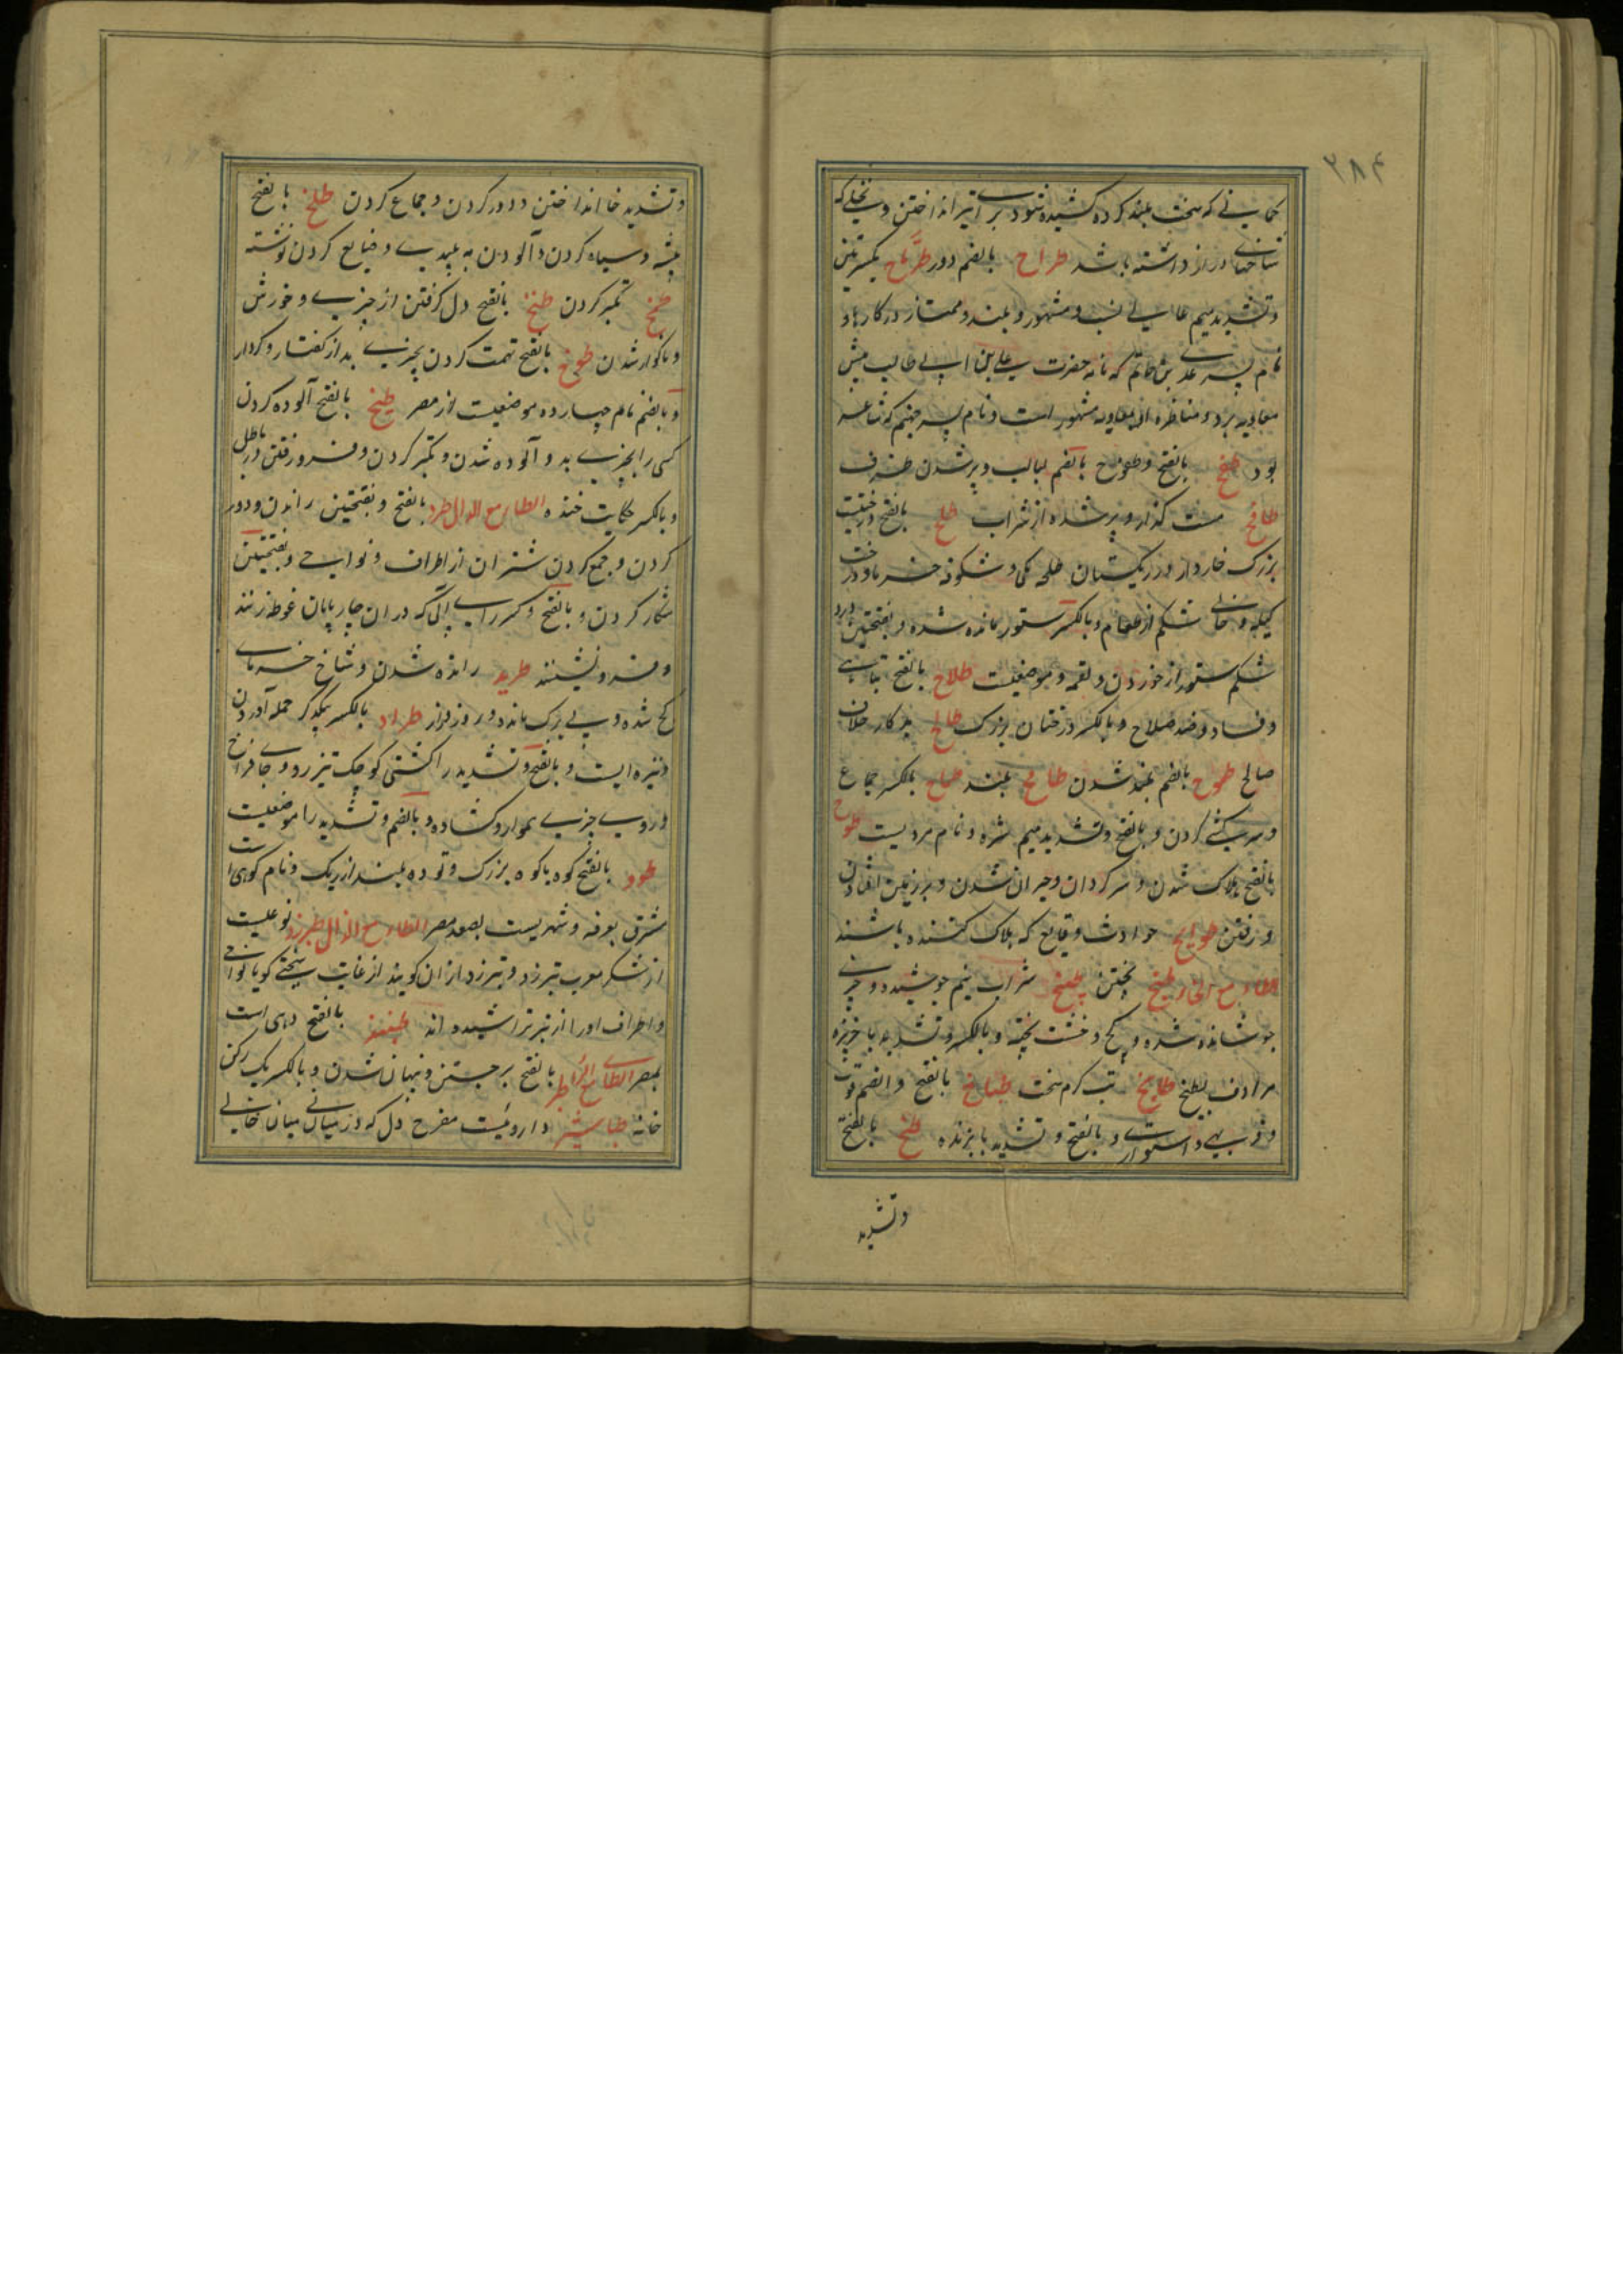 ۲۸۴
کمانی که سخت بلند کرده کشیده شود برای تیر انداختن و نخلی که
شاخهای دراز داشته باشد طراح بالضم دور طرماح بکسرتین
و تشدید میم عالی نسب و مشهور و بلند و ممتاز در کارها و
نام پسر عدی بن حاتم که نامه حضرت علی بن ابی طالب پیش
معاویه برد و مناظره او بمعاویه مشهور است و نام پسر جهنم که شاعر
بود طفح بالفتح و طفوح بالضم لبالب و پر شدن ظرف
طافح مست کذاره و پر شده از شراب طلح بالفتح درختیست
بزرک خاردار در ریکستان طلحه یکی و شکوفه خرما و درخت
کیله و خالی شکم از طعام و بالکسر ستور مانده شده و بفتحتین درد
شکم ستور از خوردن و لقمه و موضعیست طلاح بالفتح تباهی
و فساد و ضد صلاح و بالکسر درختان بزرک طالح بدکار خلاف
صالح طموح بالضم بلند شدن طامح بلند طماح بالکسر جماع
و سرکشی کردن و بالفتح و تشدید میم شره و نام مردیست طوح
بالفتح هلاک شدن و سرکردان و حیران شدن و بر زمین افتادن
و رفتن طوایح حوادث و قایع که هلاک کننده باشند
الطاء مع الخاء طبخ پختن طبیخ شراب نیم جوشیده و چیزی
جوشانده شده و کچ و خشت پخته و بالکسر و تشدید با خربزه
مرادف بطیخ طابخ تب کرم سخت طباخ بالفتح و الضم قوت
و فربهی و استواری و بالفتح و تشدید با پزنده طخ بالفتح
و تشدید
و تشدید خا انداختن و دور کردن و جماع کردن طلخ بالفتح
و سیاه کردن و آلودن به پلیدی و ضایع کردن نوشته
طمخ تکبر کردن طنخ بالفتح دل کرفتن از چیزی و خورش
و ناکوار شدن طوخ بالفتح تهمت کردن بچیزی بد از کفتار و کردار
و بالضم نام چهارده موضعیست از مصر طیخ بالفتح آلوده کردن
کسی را بچیزی بد و آلوده شدن و تکبر کردن و فرو رفتن در باطل
و بالکسر حکایت خنده الطاء مع الدال طرد بالفتح و بفتحتین راندن و دور
کردن و جمع کردن شتران از اطراف و نواحی و بفتحتین
شکار کردن و بالفتح و کسر را آبی که در آن چارپایان غوطه زنند
و فرو نشینند طرید رانده شدن و شاخ خرمای
کج شده و بی برک مانده و روز دراز طراد بالکسر بیکدیکر حمله آوردن
و نیزه ایست و بالفتح و تشدید را کشتی کوچک تیز رو و جای فراخ
و روی چیزی هموار و کشاده و بالضم و تشدید را موضعیست
طود بالفتح کوه یا کوه بزرک و توده بلند از ریک و نام کوهی است
مشرف بعرفه و شهریست بصعید مصر الطاء مع الذال طبرزذ نوعیست
از شکر معرب تبرزد و تبرزد ازان کویند از غایت سختی کویا نواحی
و اطراف او را از تبر تراشیده اند طبنذ بالفتح دهی است
بمصر الطاء مع الراء طبر بالفتح برجستن و پنهان شدن و بالکسر یک رکن
خانه طباشیر داروئیست مفرح دل که در میانی میان خالی